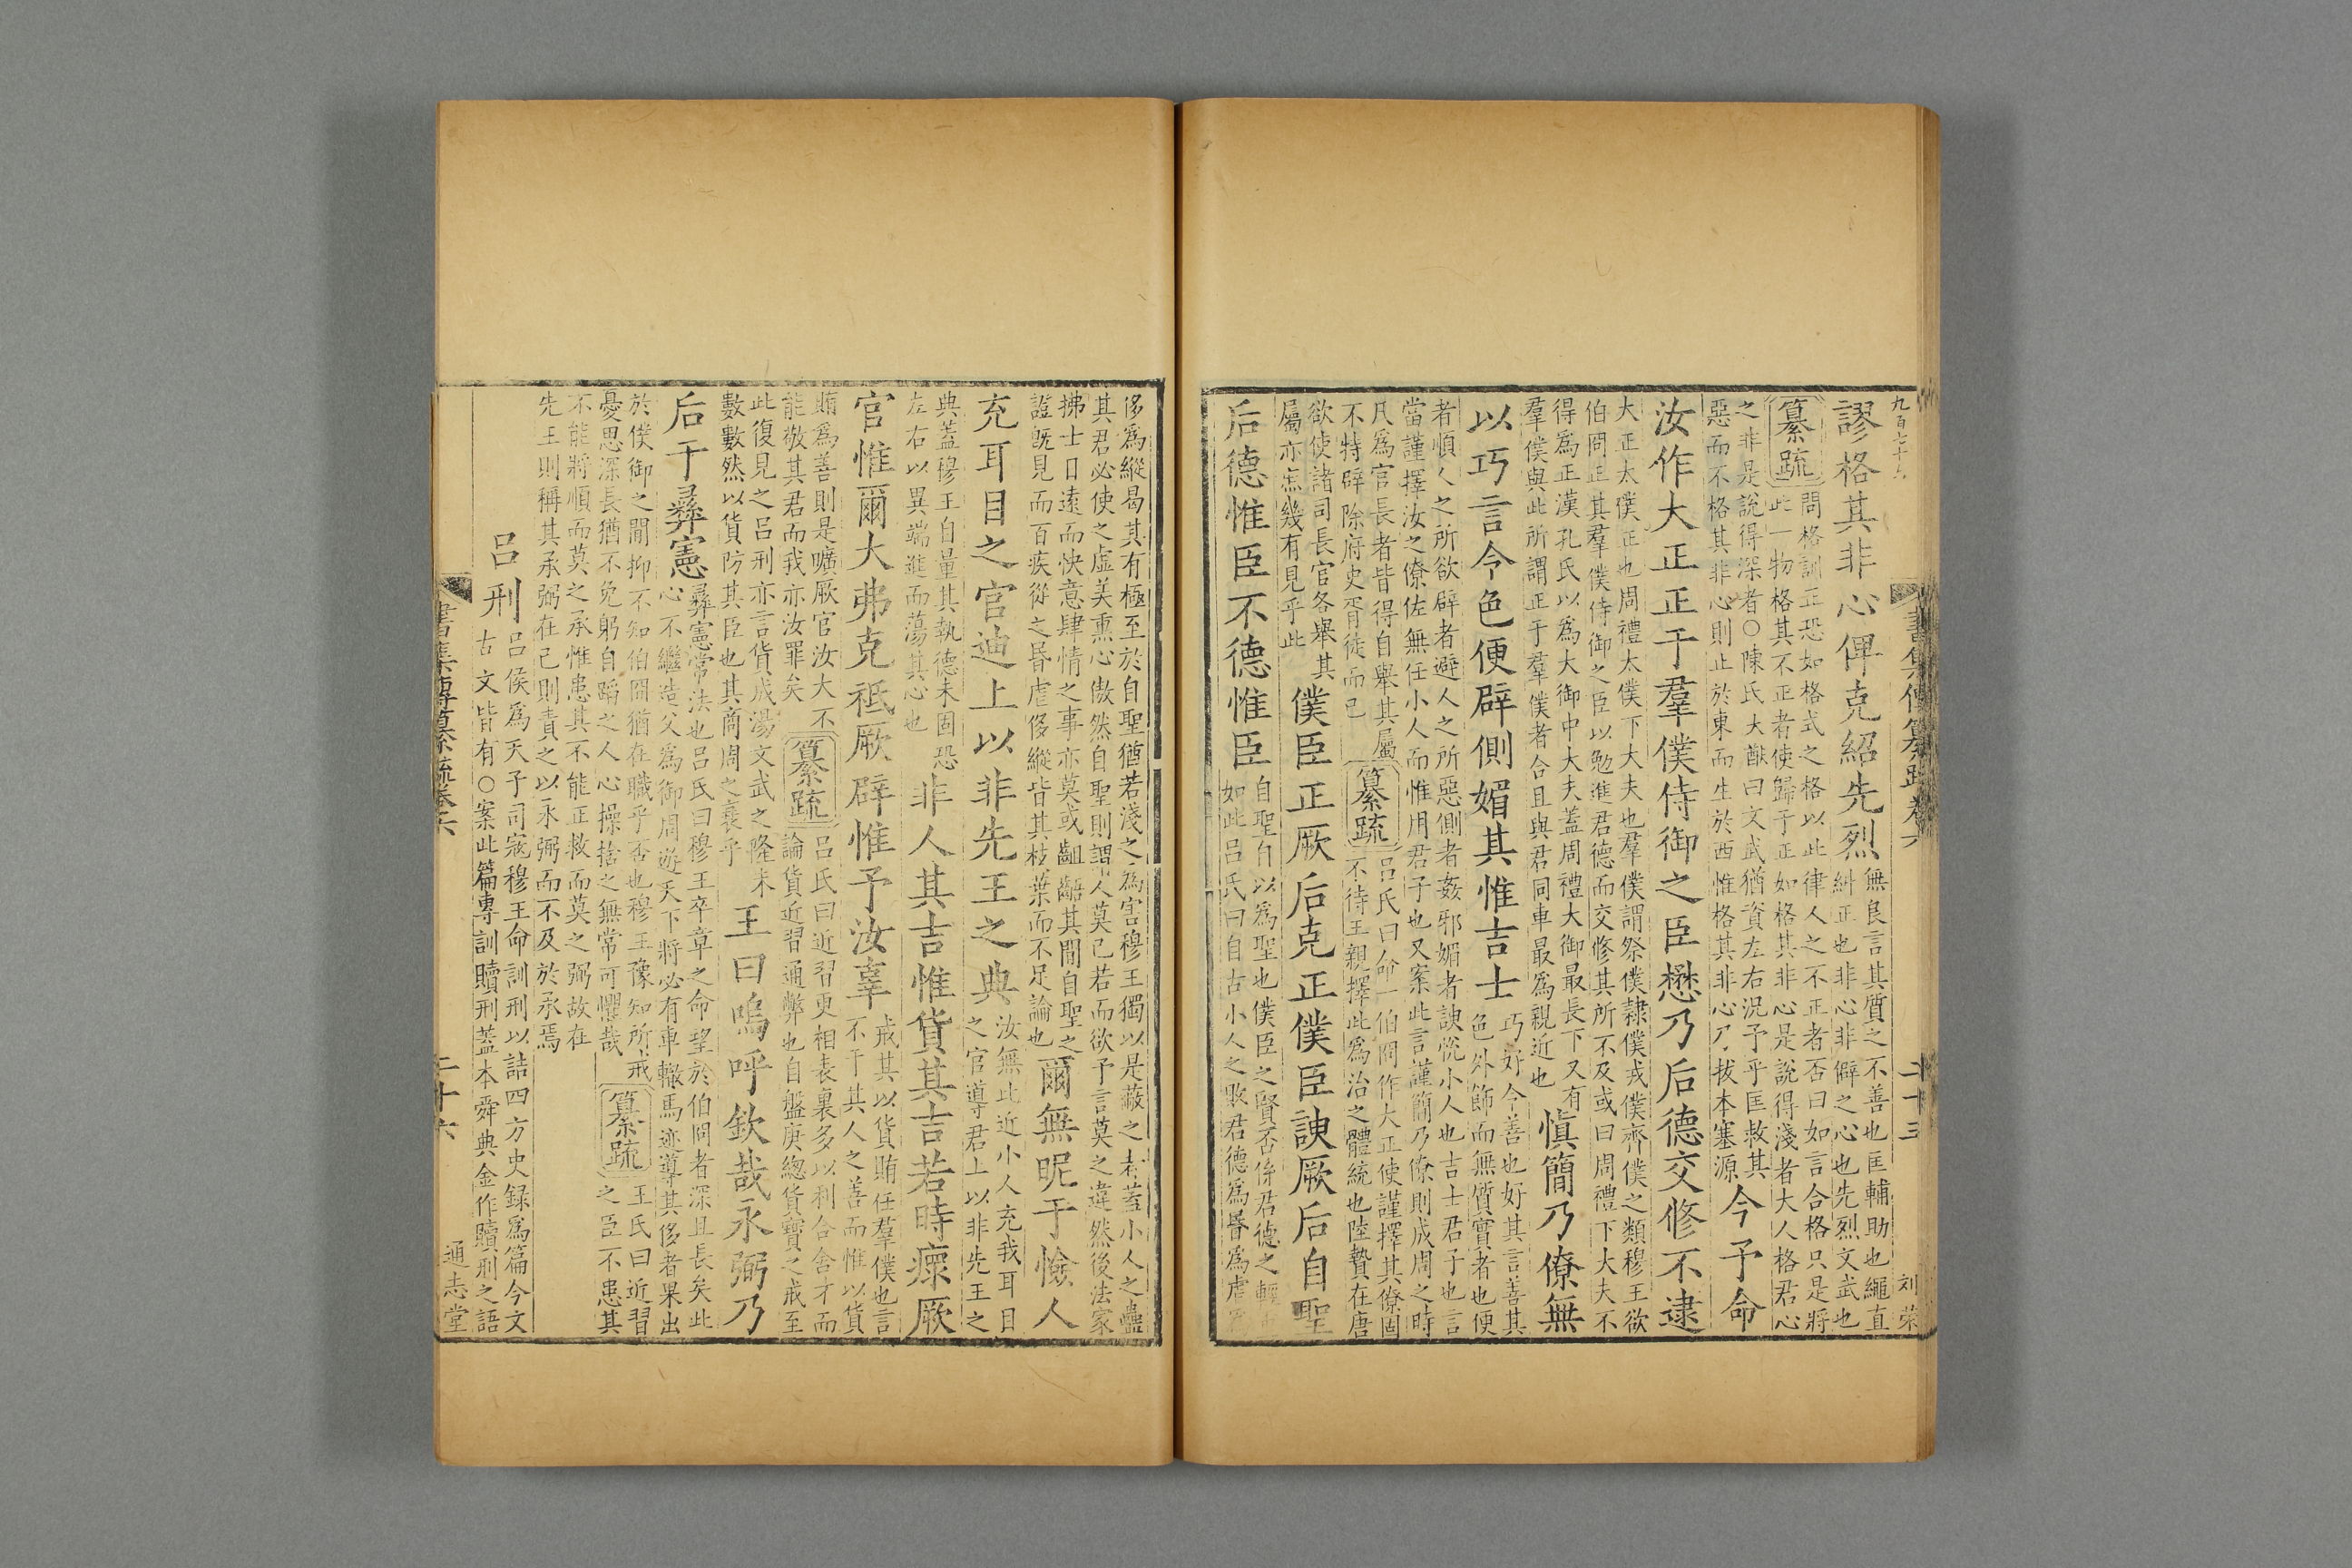 九百七十
書集傳纂疏卷六
刘荣
謬格其非心俾克紹先烈
無良言其質之不善也匡輔助也繩直
糾正也非心非僻之心也先烈文武也
纂疏
問格訓正恐如格式之格以此律人之不正者否曰如言合格只是將
此一物格其不正者使歸于正如格其非心是說得淺者大人格君心
之非是說得深者○陳氏大猷曰文武猶資左右況予乎匡救其
惡而不格其非心則止於東而生於西惟格其非心乃拔本塞源
今予命
汝作大正正于羣僕侍御之臣懋乃后德交修不逮
大正太僕正也周禮太僕下大夫也羣僕謂祭僕隸僕戎僕齊僕之類穆王欲
伯冏正其羣僕侍御之臣以勉進君德而交修其所不及或曰周禮下大夫不
得爲正漢孔氏以爲大御中大夫蓋周禮大御最長下又有
羣僕與此所謂正于羣僕者合且與君同車最爲親近也
愼簡乃僚無
以巧言令色便辟側媚其惟吉士
巧好令善也好其言善其
色外飾而無質實者也便
者順人之所欲辟者避人之所惡側者姦邪媚者諛悅小人也吉士君子也言
當謹擇汝之僚佐無任小人而惟用君子也又案此言謹簡乃僚則成周之時
凡爲官長者皆得自舉其屬
不特辟除府史胥徒而已
纂疏
呂氏曰命一伯冏作大正使謹擇其僚固
不待王親擇此爲治之體統也陸贄在唐
欲使諸司長官各舉其
屬亦庶幾有見乎此
僕臣正厥后克正僕臣諛厥后自聖
后德惟臣不德惟臣
自聖自以爲聖也僕臣之賢否係君德之輕
如此呂氏曰自古小人之敗君德爲昏爲虐
侈爲縱曷其有極至於自聖猶若淺之爲害穆王獨以是蔽之者蓋小人之蠱
其君必使之虛美熏心傲然自聖則謂人莫已若而欲予言莫之違然後法家
拂士日遠而快意肆情之事亦莫或齟齬其間自聖之
證旣見而百疾從之昏虐侈縱皆其枝葉而不足論也
爾無昵于憸人
充耳目之官迪上以非先王之典
汝無比近小人充我耳目
之官導君上以非先王之
典蓋穆王自量其執德未固恐
左右以異端進而蕩其心也
非人其吉惟貨其吉若時瘝厥
官惟爾大弗克祗厥辟惟予汝辜
戒其以貨賄任羣僕也言
不干其人之善而惟以貨
賄爲善則是曠厥官汝大不
能敬其君而我亦汝罪矣
纂疏
呂氏曰近習更相表裏多以利合舍才而
論貨近習通弊也自盤庚總貨寶之戒至
此復見之呂刑亦言貨成湯文武之隆未
數數然以貨防其臣也其商周之衰乎
王曰嗚呼欽哉永弼乃
后于彝憲
彝憲常法也呂氏曰穆王卒章之命望於伯冏者深且長矣此
心不繼造父爲御周遊天下將必有車轍馬迹導其侈者果出
於僕御之間抑不知伯冏猶在職乎否也穆王豫知所戒
憂思深長猶不免躬自蹈之人心操捨之無常可懼哉
纂疏
王氏曰近習
之臣不患其
不能將順而莫之承惟患其不能正救而莫之弼故在
先王則稱其承弼在已則責之以永弼而不及於承焉
呂刑
呂侯爲天子司寇穆王命訓刑以詰四方史録爲篇今文
古文皆有○案此篇專訓贖刑蓋本舜典金作贖刑之語
書集傳纂疏卷六
二十六
通志堂